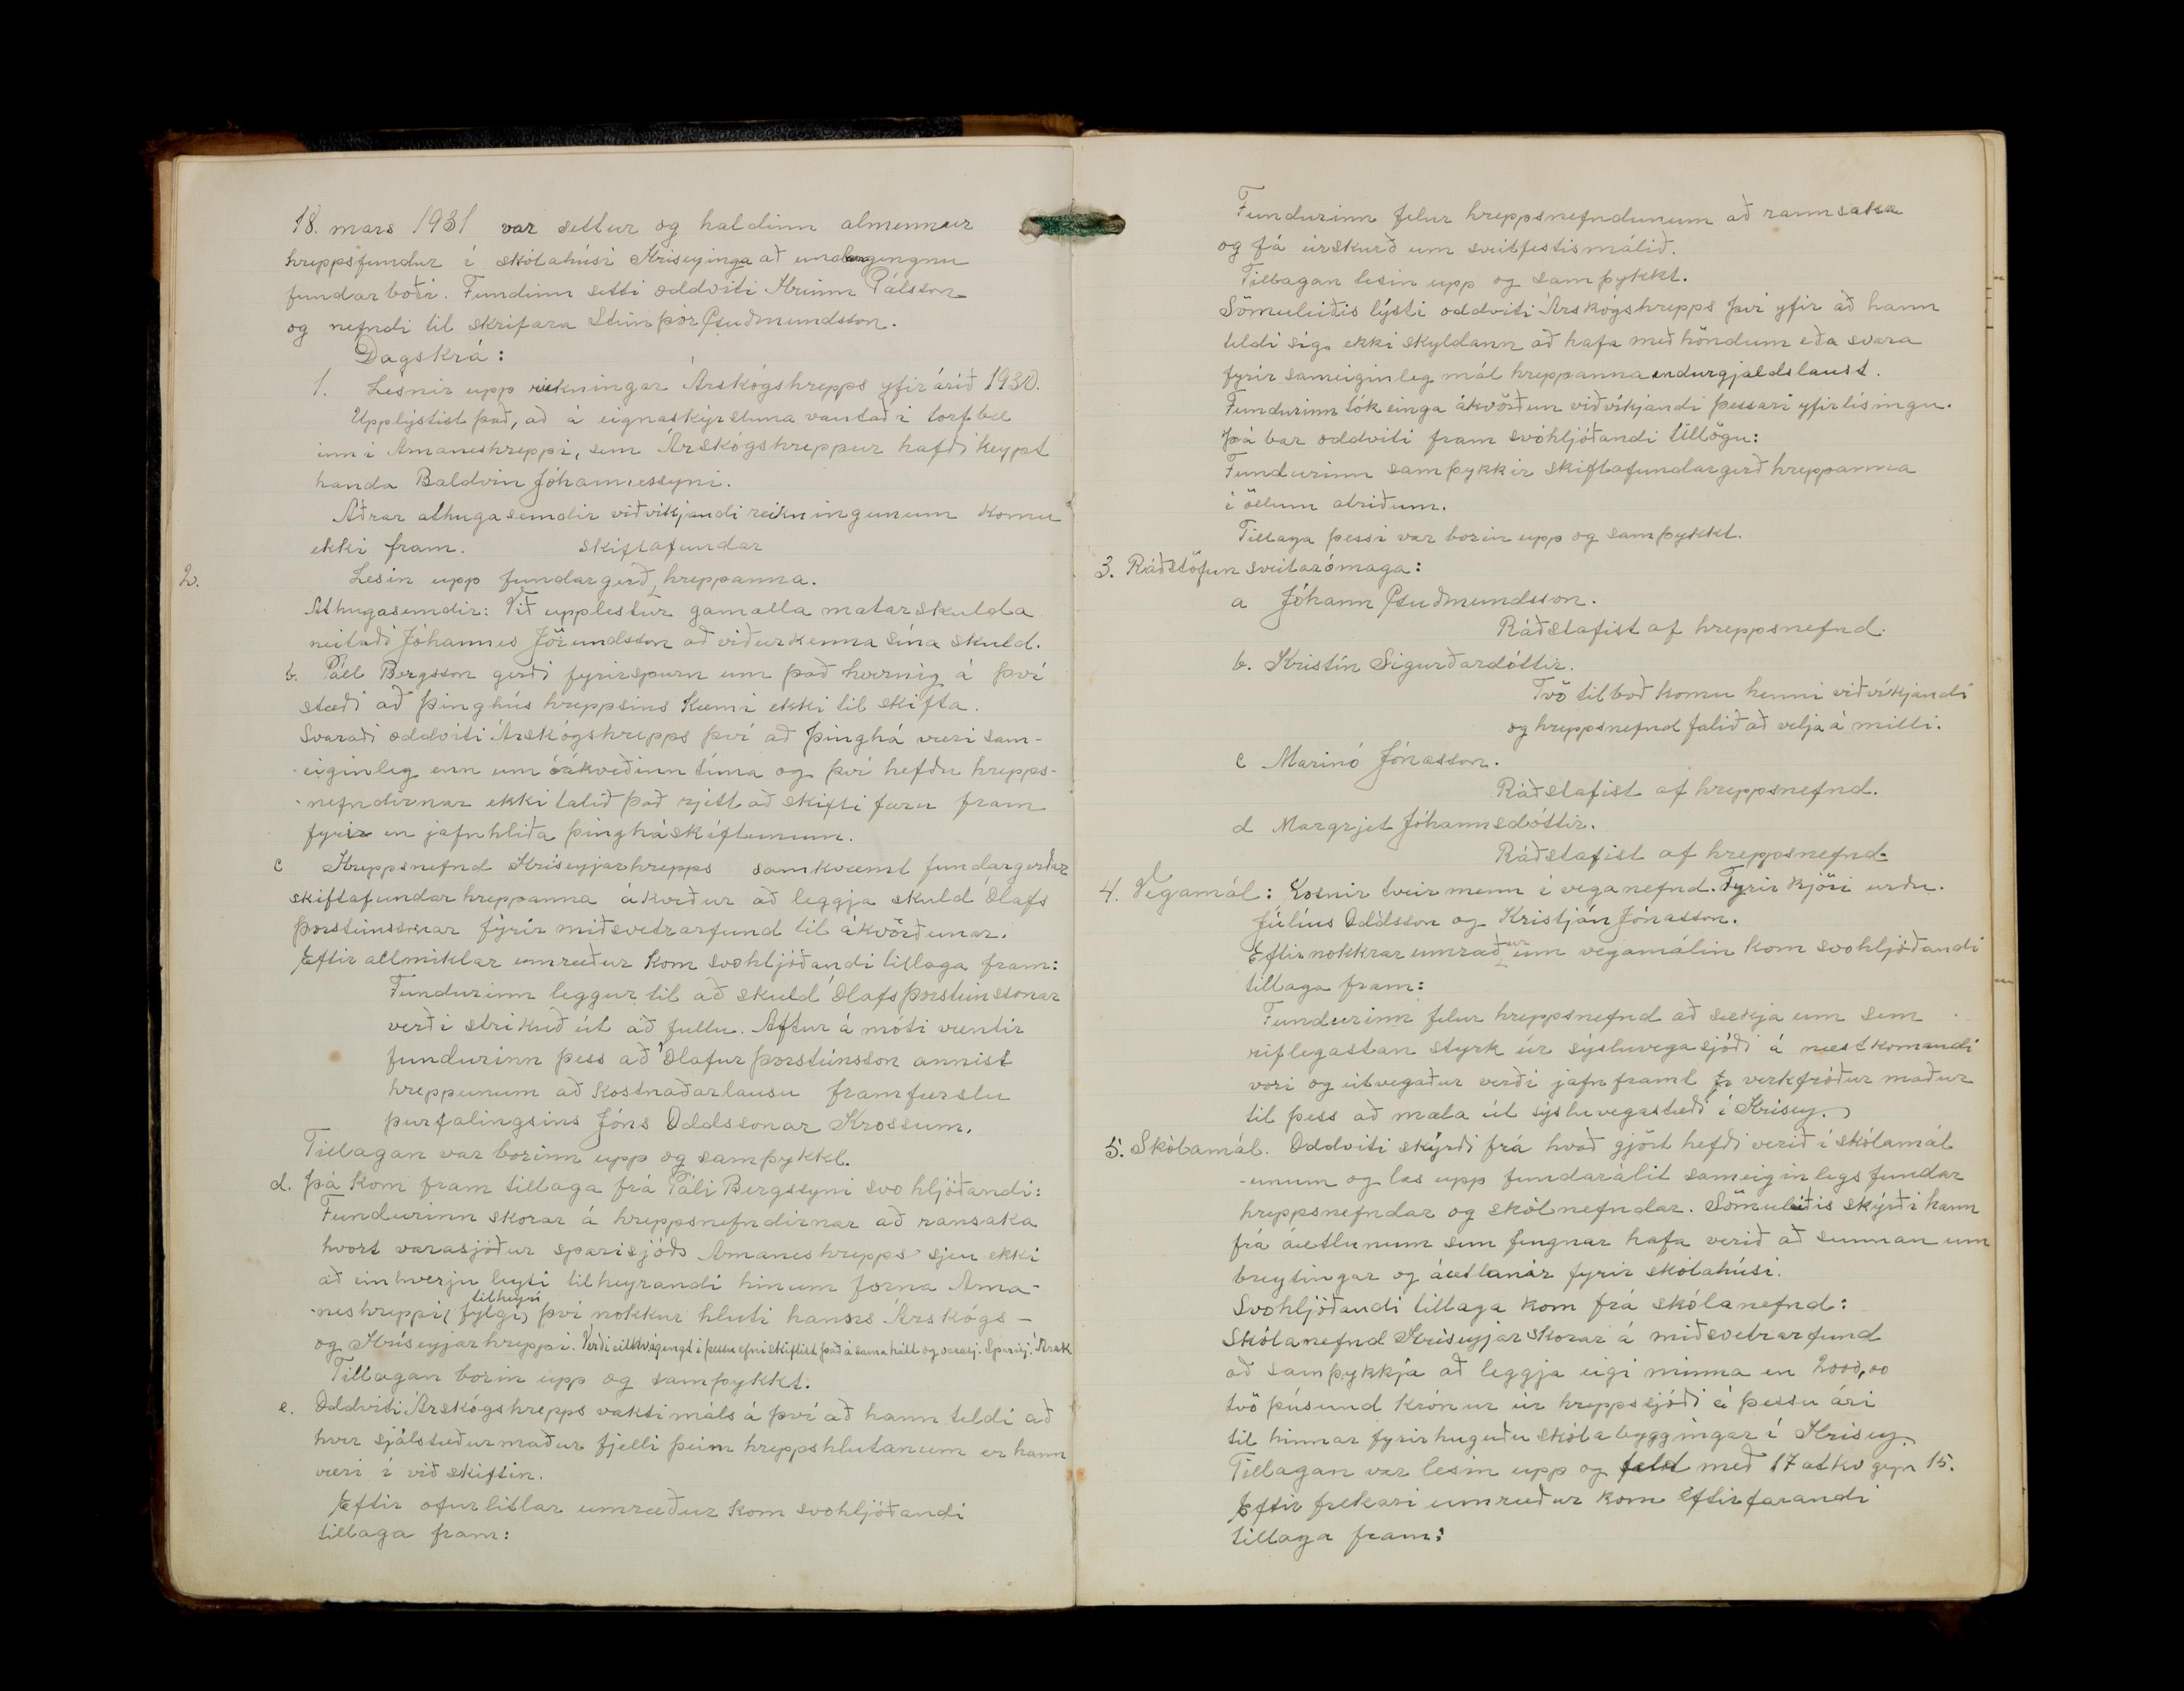 18. mars 1931 var settur og haldinn almennur
hreppsfundur í skólahúsi Hríseyinga að undangengnu
fundarboði. Fundinn setti oddviti Hreinn Pálsson
og nefndi til skrifara Steinþór Guðmundsson.
Dagskrá:
1. Lesnir upp reikningar Árskógshrepps yfir árið 1930.
Upplýstist það, að á eignaskýrsluna vantaði torfbæ
inni Arnaneshreppi, sem Árskógshreppur hafði keypt
handa Baldvin Jóhannessyni.
Aðrar athugasemdir viðvikjandi reikningunum komu
ekki fram.
2. Lesin upp fundargerð skiftafundar hreppanna.
Athugasemdir: Við upplestur gamalla matarskulda
neitaði Jóhannes Jörundsson að viðurkenna sína skuld.
b. Páll Bergsson gerði fyrirspurn um það hvernig á því
stæði að þinghús hreppsins kæmi ekki til skifta.
Svaraði oddviti Árskógshrepps því að þinghá væri sam-
-eiginleg enn um óákveðinn tíma og því hefðu hrepps-
-nefndirnar ekki talið það rjett að skifti færu fram
fyrir en jafnhliða þingháskiftunum.
c Hreppsnefnd Hríseyjarhrepps samkvæmt fundargerðar
skiftafundar hreppanna ákveður að leggja skuld Ólafs
Þorsteinssonar fyrir miðsvetrarfund til ákvörðunar.
Eftir allmiklar umræður kom svohljóðandi tillaga fram:
Fundurinn leggur til að skuld Ólafs Þorsteinssonar
verði strikuð út að fullu. Aftur á móti væntir
fundurinn þess að Ólafur Þorsteinsson annist
hreppunum að kostnaðarlausu framfærslu
þurfalingsins Jóns Oddssonar Krossum.
Tillagan var borinn upp og samþykkt.
d. Þá kom fram tillaga frá Páli Bergssyni svo hljóðandi:
Fundurinn skorar á hreppsnefndirnar að ransaka
hvort varasjóður sparisjóðs Arnaneshrepps sjeu ekki
að einhverju leyti tilheyrandi hinum forna Arna-
-neshreppi, (fylgi) tilheyri því nokkur hluti hanns Árskógs-
og Hríseyjarhreppi. Verði eitthvágengt í þessu efni skiftist það á sama hátt og varasj. Sparisj. Ársk
Tillagan borin upp og samþykkt.
e. Oddviti Árskógshrepps vakti máls á því að hann teldi að
hver sjálstæðurmaður fjelli þeim hreppshlutanum er hann
væri í við skiftin.
Eftir ofurlitlar umræður kom svohljóðandi
tillaga fram:
Fundurinn felur hreppsnefndunum að rannsaka
og fá úrskurð um sveitfestismálið.
Tillagan lesin upp og samþykkt.
Sömuleiðis lýsti oddviti Árskógshrepps því yfir að hann
teldi sig ekki skyldann að hafa með höndum eða svara
fyrir sameiginleg mál hreppanna endurgjaldslaust.
Fundurinn tók einga ákvörðun viðvikjandi þessari yfirlísingu.
Þá bar oddviti fram svohljóðandi tillögu:
Fundurinn samþykkir skiftafundargerð hreppanna
í öllum atriðum.
Tillaga þessi var borin upp og samþykkt.
3. Ráðstöfun sveitarómaga:
a Jóhann Guðmundsson.
Ráðstafist af hreppsnefnd.
b. Kristín Sigurðardóttir.
Tvö tilboð komu henni viðvíkjandi
og hreppsnefnd falið að velja á milli.
c Marinó Jónasson.
Ráðstafist af hreppsnefnd.
d Margrjet Jóhannsdóttir.
Ráðstafist af hreppsnefnd.
4. Vegamál: Kosnir tveir menn í veganefnd. Fyrir kjöri urðu.
Júlíus Oddsson og Kristján Jónasson.
Eftir nokkrar umræður um vegamálin kom svohljóðandi
tillaga fram:
Fundurinn felur hreppsnefnd að sækja um sem
riflegastan styrk úr sýsluvegasjóði á næstkomandi
vori og útvegaður verði jafnframt verkfróður maður
til þess að mæla út sýsluvegastæði í Hrísey.
5. Skólamál. Oddviti skýrði frá hvað gjört hefði verið í skólamál
-unum og las upp fundarálit sameiginlegs fundar
hreppsnefndar og skólnefndar. Sömuleiðis skýrði hann
frá áætlunum sem fengnar hafa verið að sunnan um
breytingar og áætlanir fyrir skólahúsi.
Svohljóðandi tillaga kom frá skólanefnd:
Skólanefnd Hríseyjar skorar á miðsvetrarfund
að samþykkja að leggja eigi minna en 2000,00
tvö þúsund krónur úr hreppssjóði á þessu ári
til hinnar fyrirhuguðu skólabyggingar í Hrísey.
Tillagan var lesin upp og feld með 17 atkv gegn 15.
Eftir frekari umræður kom eftirfarandi
tillaga fram: